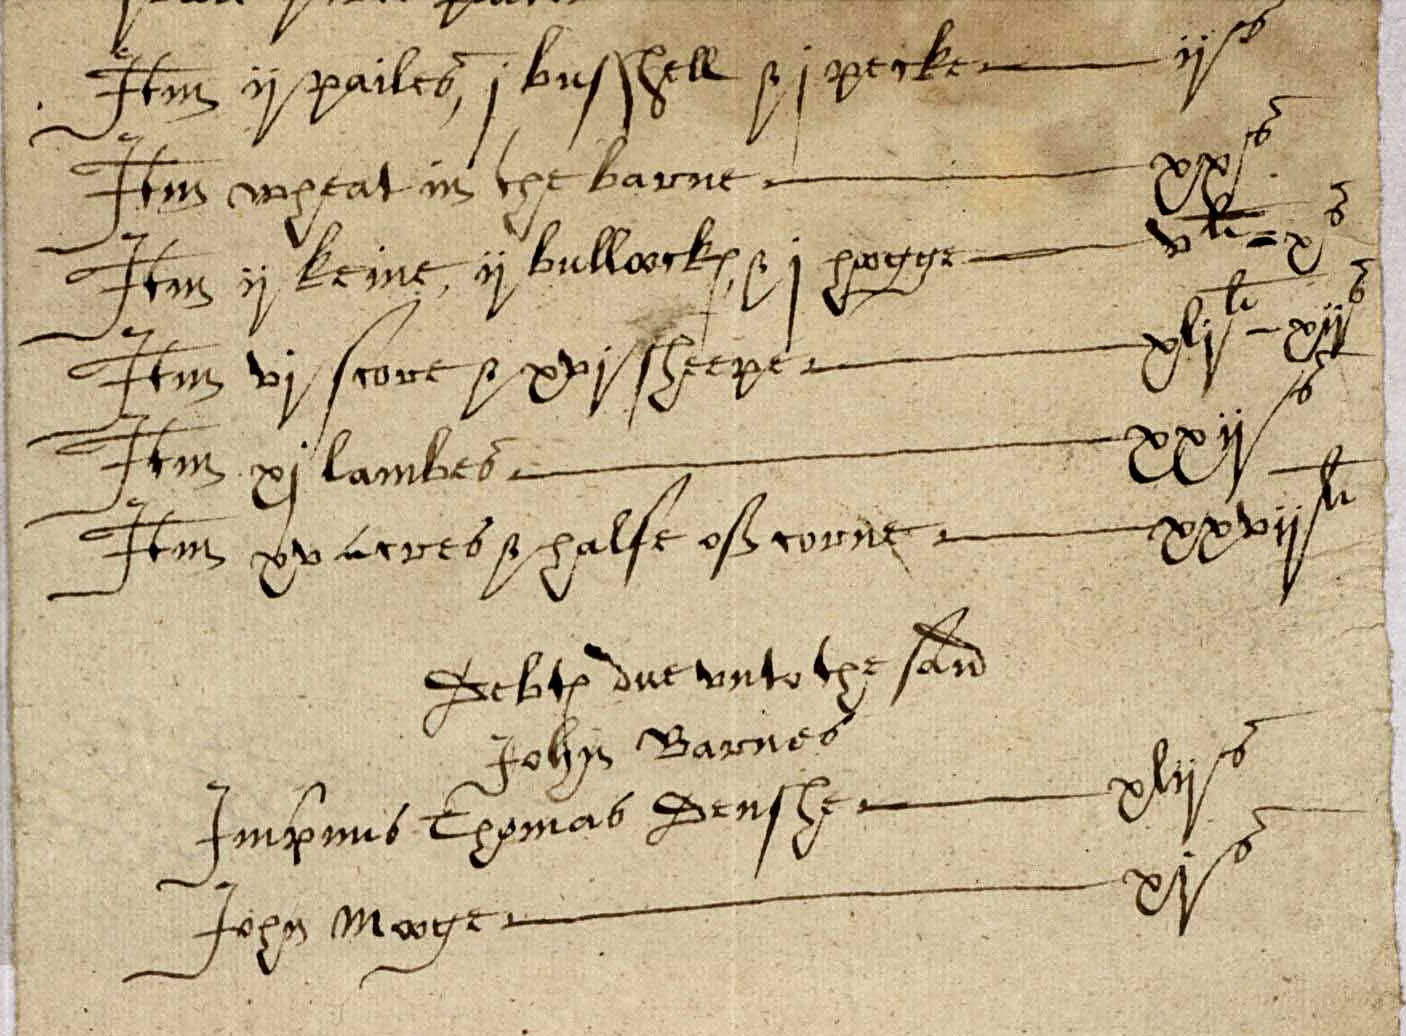 Itm ij pailes, j bushell & j pecke ijs
Itm wheat in the barne xxs
Itm ij keine, ij bullockes, & j hogge vli - xs
Itm vj score & xvj sheepe xljli - xijs
Itm xj lambes xxijs
Itm xv acres & halfe off corne xxvijli
Debtes due vnto the said
John Barnes
Imprimis Thomas Denshe xlijs
John Mooge xjs